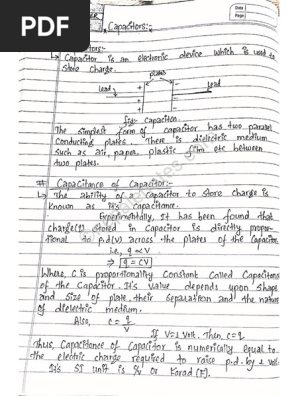 PDF
Date
Page
Capacitors:-
Capacitor is an electronic device which is used to
Store Charge.
plates
Lead
Lead
fig:- Capacitor
The simplest form of capacitor has two parallel
Conducting plates. There is dielectric medium
such as air, paper, plastic film etc between
two plates.
# Capacitance of Capacitor:-
The ability of a capacitor to store charge is
known as it's capacitance.
Experimentally, it has been found that
charge(q) stored in Capacitor is directly propor-
tional to p.d(v) across the plates of the capacitor
i.e, q ∝ V
⇒ q = CV
Where, C is proportionality Constant called Capacitans
of the Capacitor. It's value depends upon shape
and size of plate, their separation and the nature
of dielectric medium.
Also, C = q/V
If V=1 Volt. Then, C=q
Thus, Capacitance of Capacitor is numerically equal to
the electric charge required to raise p.d. by 1 volt
It's SI unit is C/V or Farad (F).